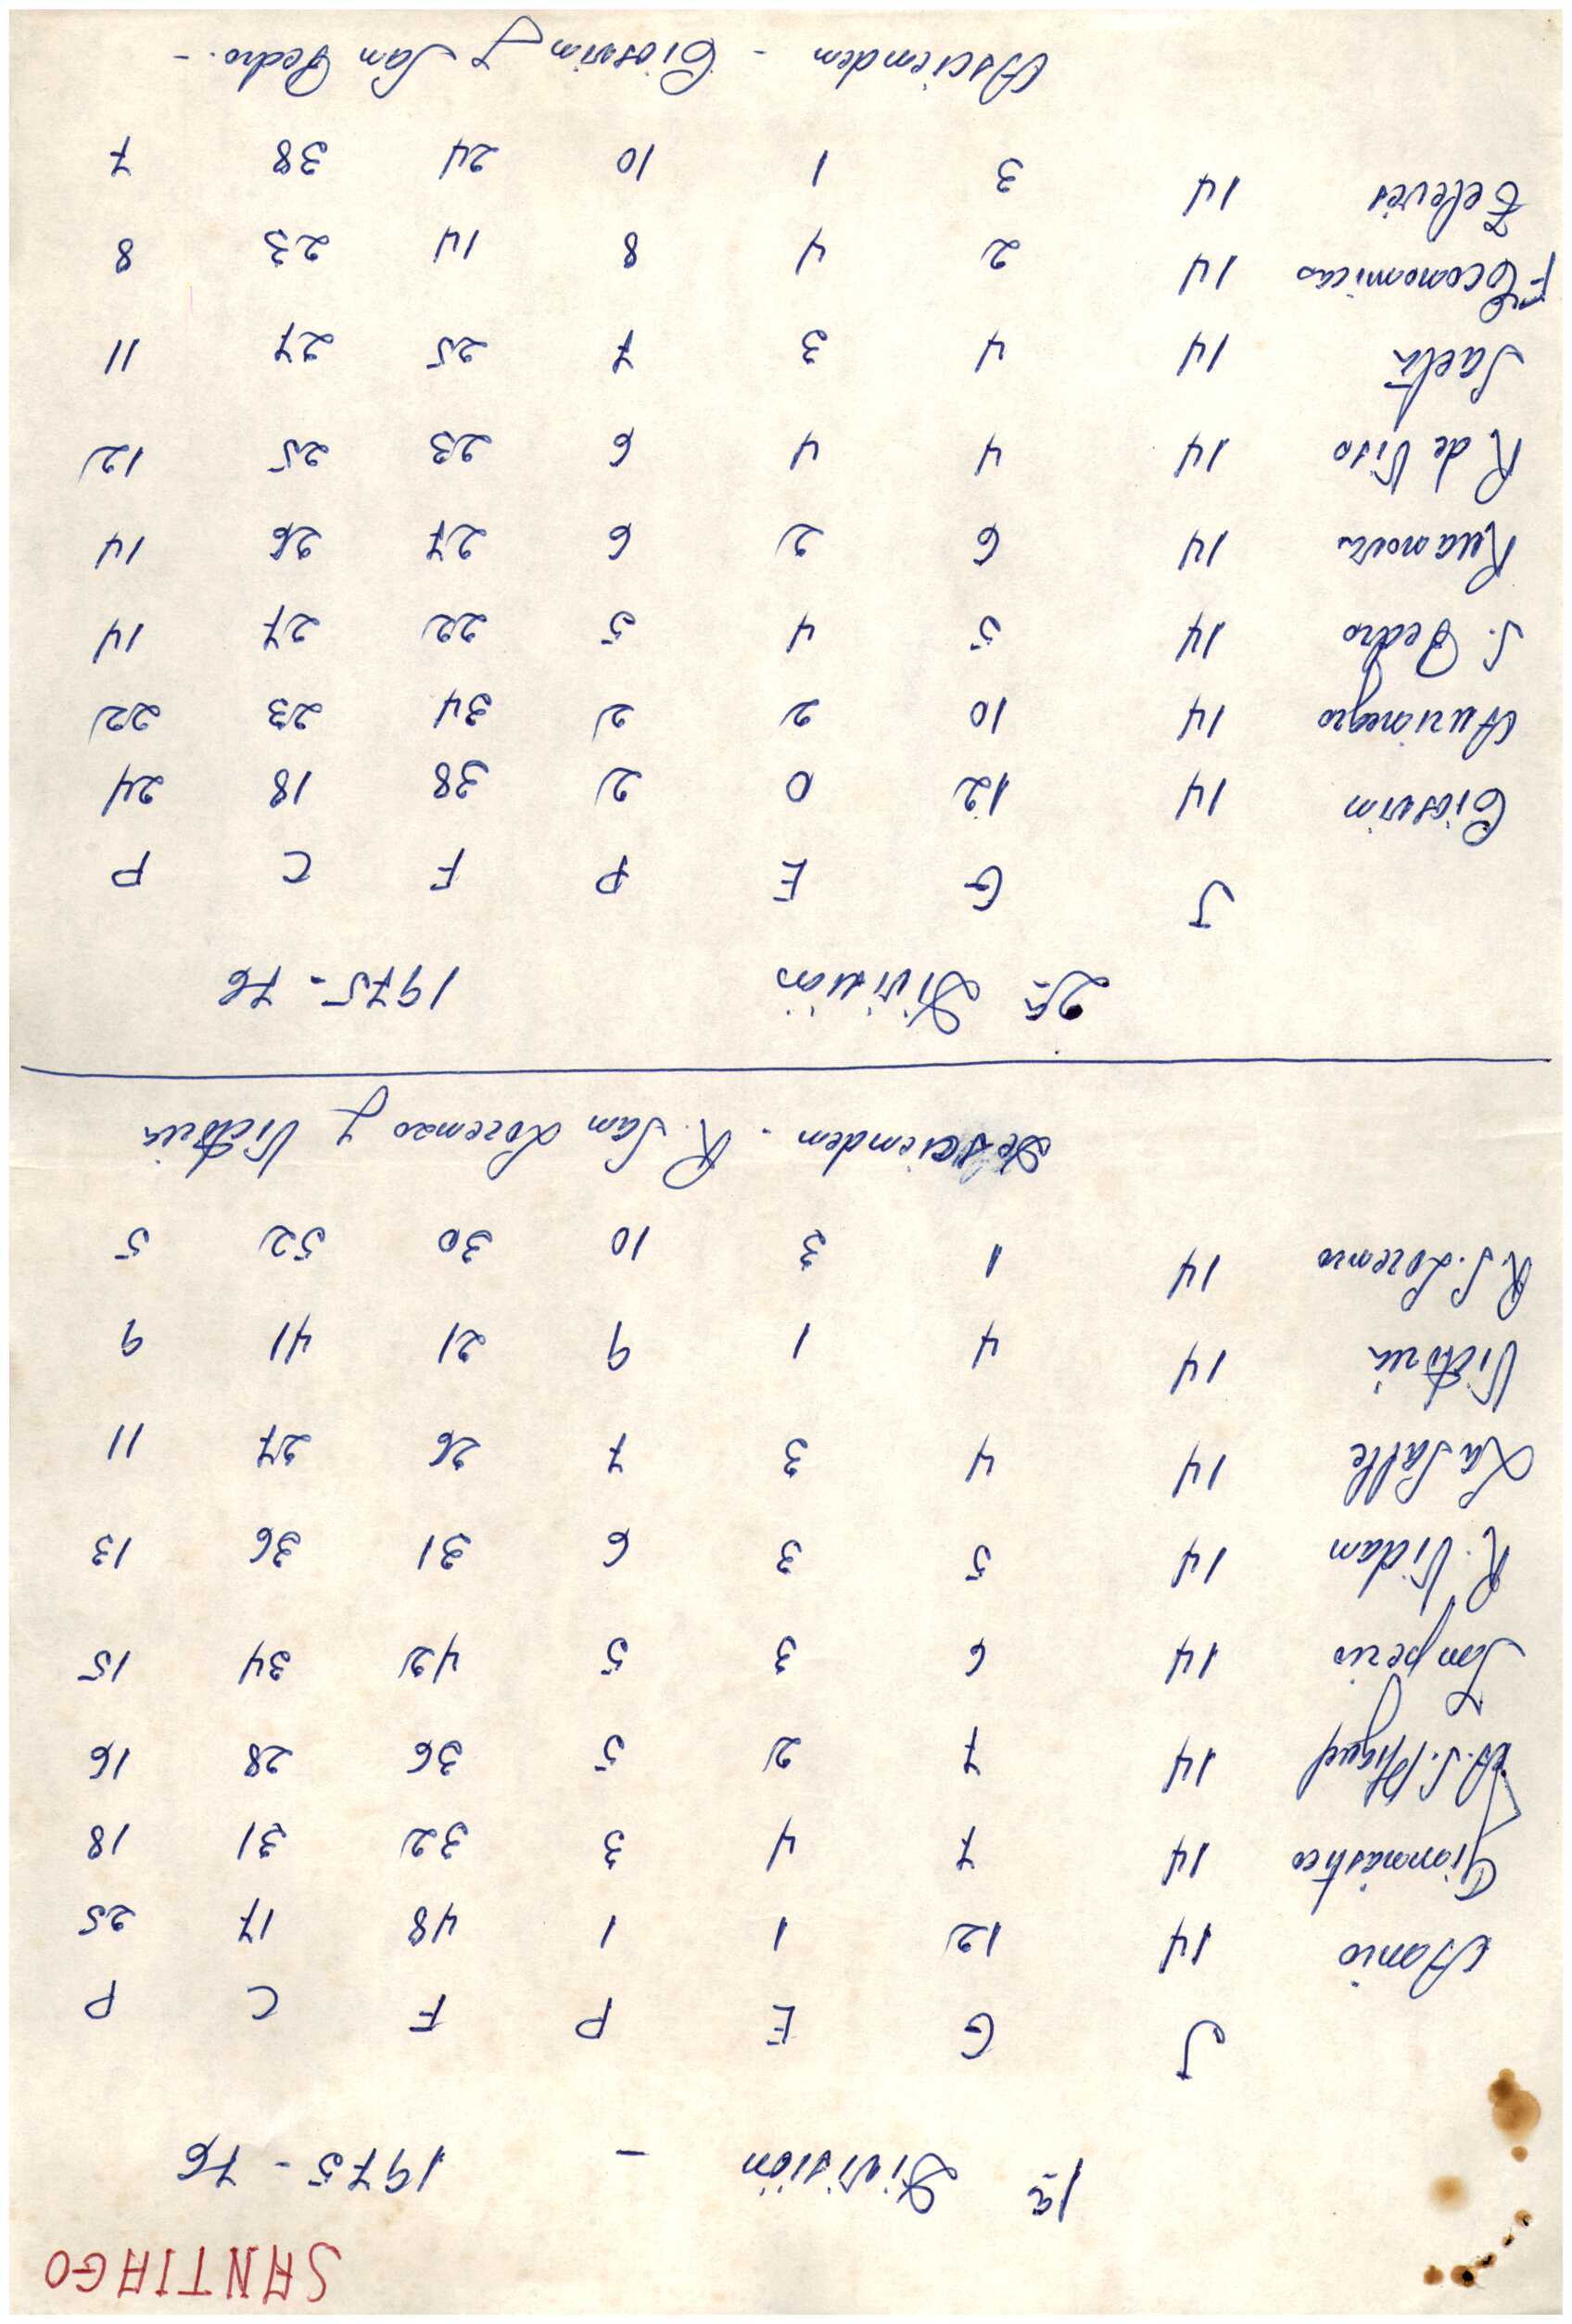 SANTIAGO
1ª División - 1975-76
J G E P F C P
Amio 14 12 1 1 48 17 25
Gimnástico 14 7 4 3 32 31 18
A.S. Miguel 14 7 2 5 36 28 16
Imperio 14 6 3 5 42 34 15
R. Vidam 14 5 3 6 31 36 13
La Salle 14 4 3 7 26 27 11
Victoria 14 4 1 9 21 41 9
R.S. Lorenzo 14 1 3 10 30 52 5
Descienden - R. San Lorenzo y Victoria
2ª División 1975-76
J G E P F C P
Eiosvin 14 12 0 2 38 18 24
Aurinegro 14 10 2 2 34 23 22
S. Pedro 14 5 4 5 22 27 14
Ruanova 14 6 2 6 27 26 14
R de Viso 14 4 4 6 23 25 12
Saeta 14 4 3 7 25 27 11
F Economicas 14 2 4 8 14 23 8
Televés 14 3 1 10 24 38 7
Ascienden - Eiosvin y San Pedro.-